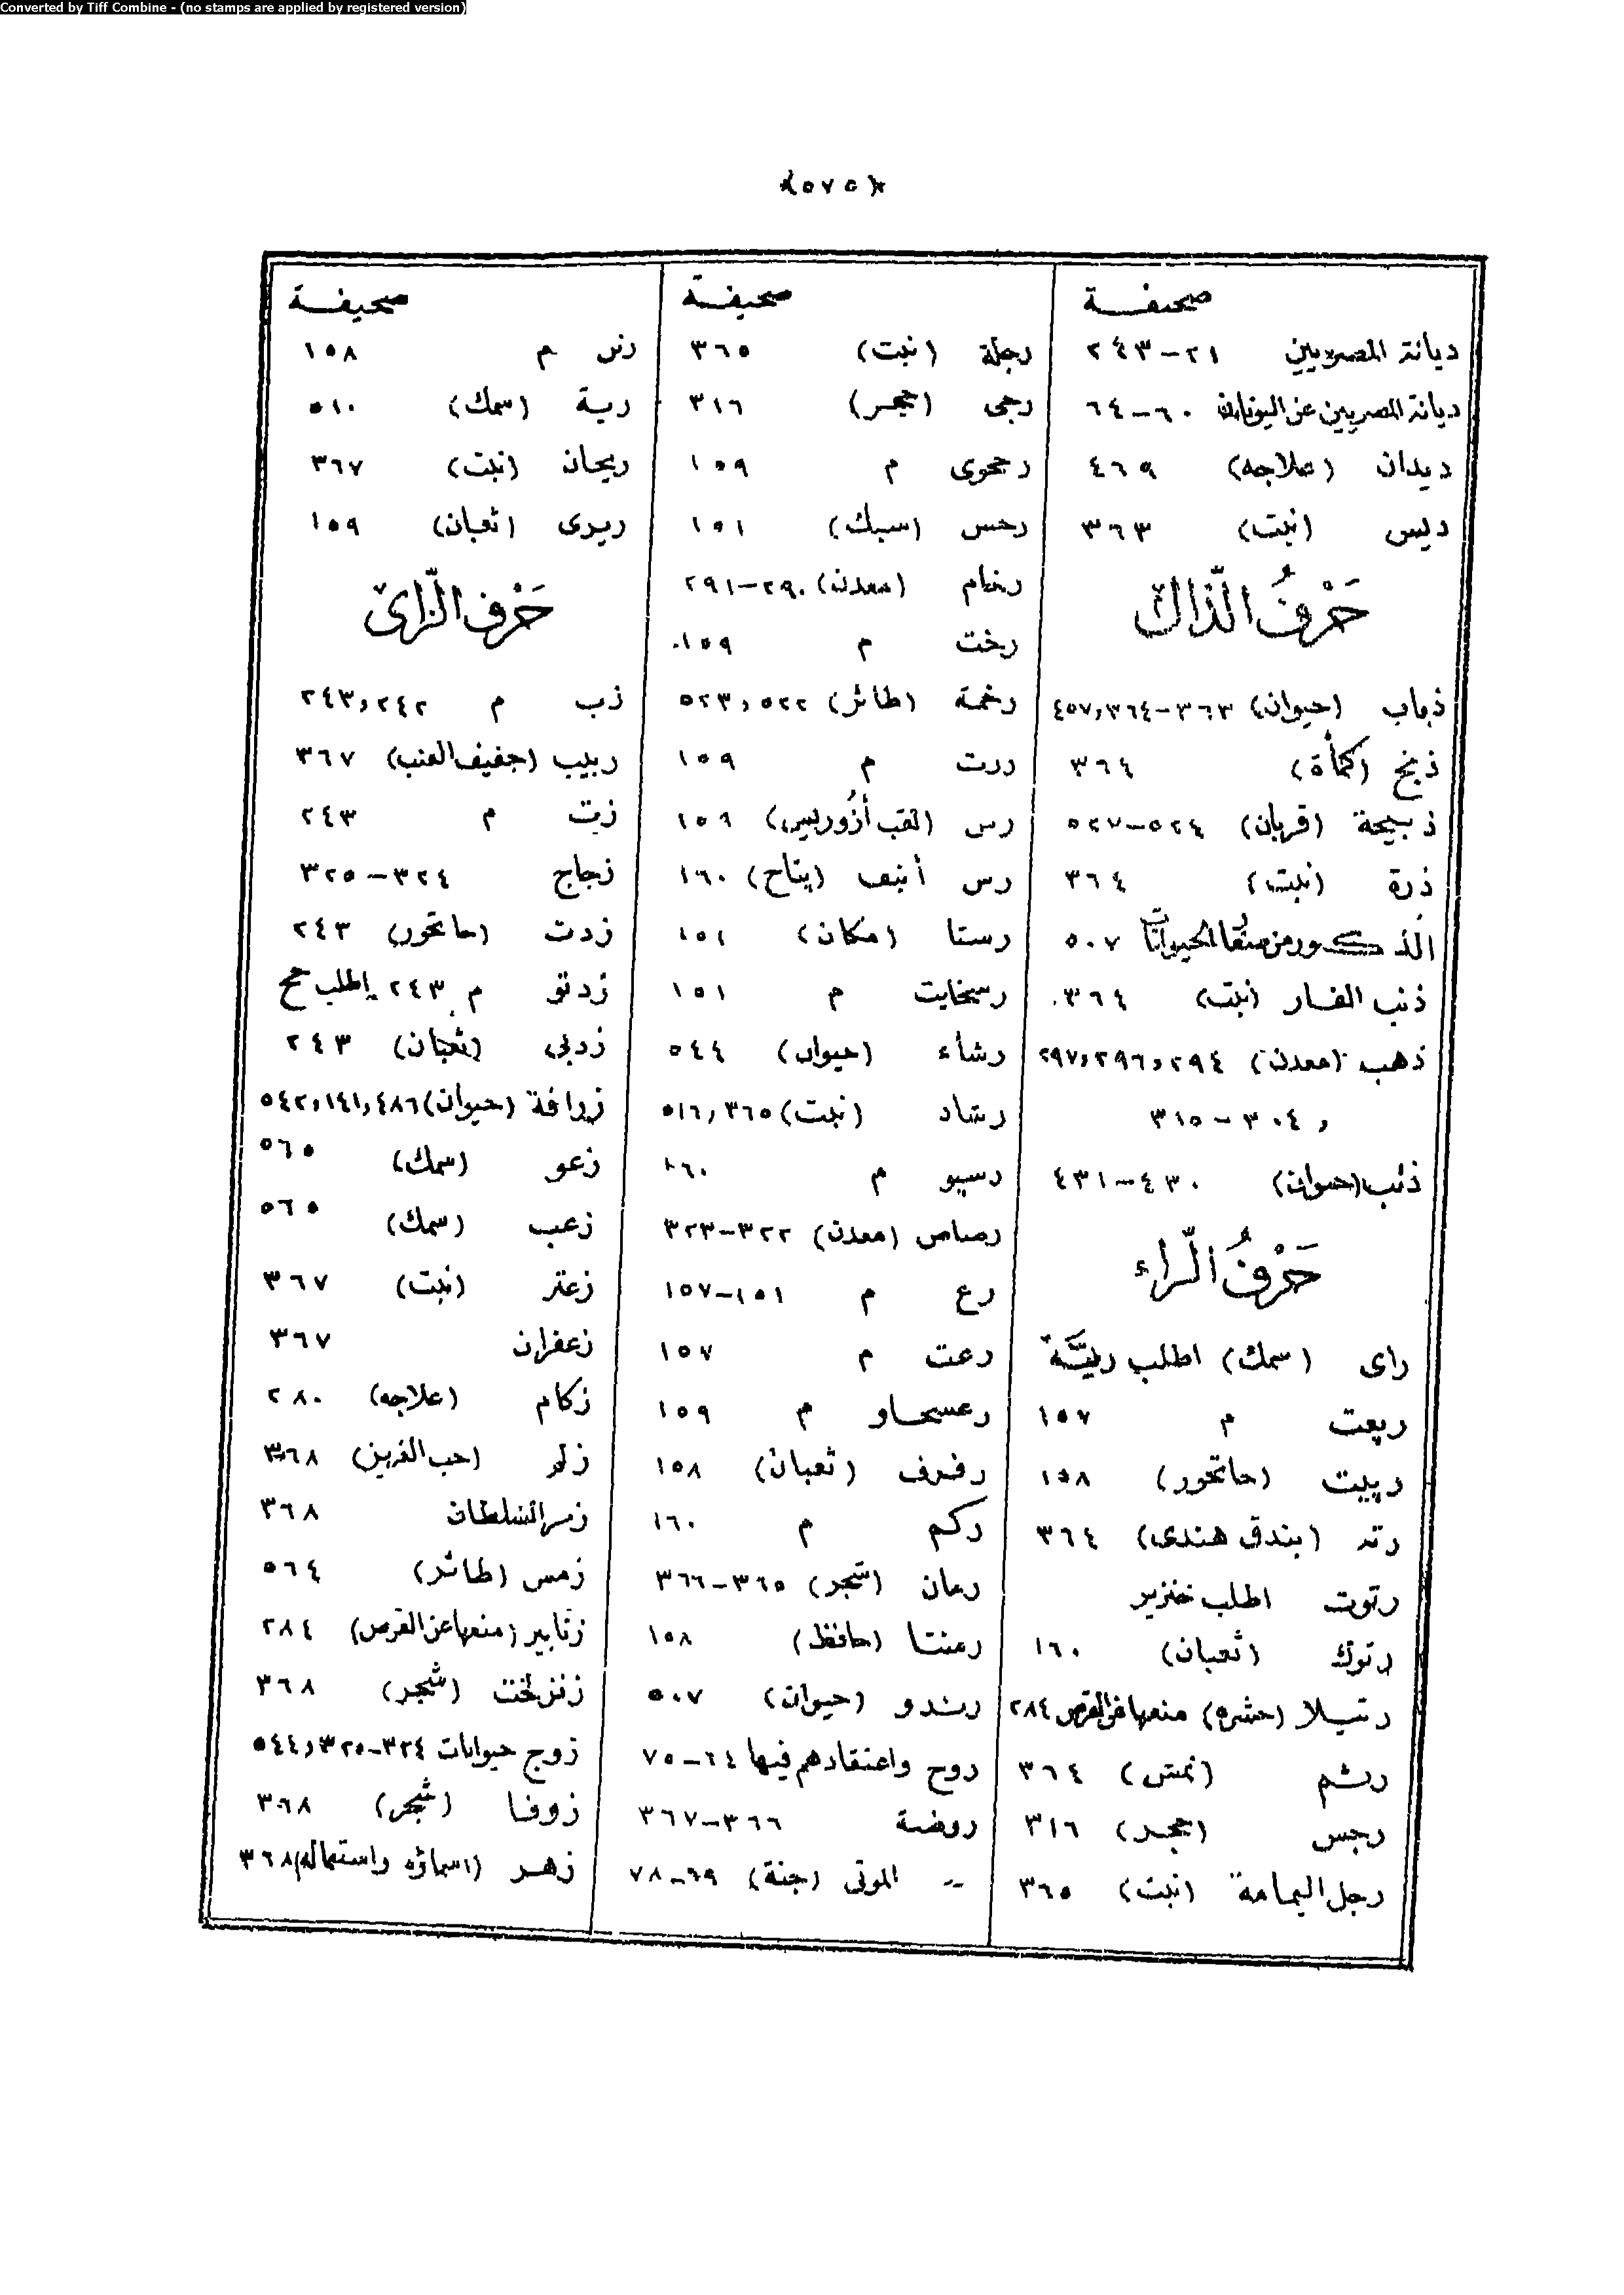 Converted by Tiff Combine - (no stamps are applied by registered version)
﴿٥٧٥﴾
صحيفة
ديانة المصريين ٢١-٢٤٣
ديانة المصريين عن اليونان ٦٠-٦٤
ديدان (علاجه) ٤٦٩
ديس (نبت) ٣٦٣
حَرْفُ الذّال
ذباب (حيوان) ٣٦٣-٣٦٤,٤٥٧
ذبح (كمأة) ٣٦٤
ذبيحة (قربان) ٥٢٤-٥٢٧
ذرة (نبت) ٣٦٤
الذكور من صنف الحيوانات ٥٠٧
ذنب الفار (نبت) ٣٦٤
ذهب (معدن) ٢٩٤,٢٩٦,٢٩٧
, ٣٠٤-٣١٥
ذئب (حيوان) ٤٣٠-٤٣١
حَرْفُ الرّاء
راى (سمك) اطلب ريّة
ربعت م ١٥٧
ربيت (حاتحور) ١٥٨
رته (بندق هندى) ٣٦٤
رتوت اطلب خنزير
رتوك (ثعبان) ١٦٠
رتيلا (حشره) منعها عن القرص ٢٨٤
رشم (نمش) ٣٦٤
رجس (حجر) ٣١٦
رجل اليمامة (نبت) ٣٦٥
صحيفة
رجلة (نبت) ٣٦٥
رجى (حجر) ٣١٦
رحوى م ١٥٩
رحس (سبك) ١٥١
رخام (معدن) ٢٩٠-٢٩١
رخت م ١٥٩
رخمة (طائر) ٥٢٢,٥٢٣
ررت م ١٥٩
رس (لقب أزوريس) ١٥٩
رس أنبف (پتاح) ١٦٠
رستا (مكان) ١٥١
رسخايت م ١٥١
رشاء (حيوان) ٥٤٤
رشاد (نبت) ٣٦٥,٥١٦
رسيو م ١٦٠
رصاص (معدن) ٣٢٢-٣٢٣
رع م ١٥١-١٥٧
رعت م ١٥٧
رعسحاو م ١٥٩
رفرف (ثعبان) ١٥٨
ركم م ١٦٠
رمان (شجر) ٣٦٥-٣٦٦
رمنتا (حافظ) ١٥٨
رندو (حيوان) ٥٠٧
روح واعتقادهم فيها ٦٤-٧٥
روضة ٣٦٦-٣٦٧
" الموتى (جنة) ٦٩-٧٨
صحيفة
رنن م ١٥٨
رية (سمك) ٥١٠
ريحان (نبت) ٣٦٧
ريرى (ثعبان) ١٥٩
حَرْف الزّاى
زب م ٢٤٢,٢٤٣
زبيب (جفيف العنب) ٣٦٧
زبت م ٢٤٣
زجاج ٣٢٤-٣٢٥
زدت (حاتحور) ٢٤٣
زدتو م ٢٤٣ إطلب مح
زدبى (ثعبان) ٢٤٣
زرافة (حيوان) ٤٨٦,١٤١,٥٤٢
زعو (سمك) ٥٦٥
زعب (سمك) ٥٦٥
زعتر (نبت) ٣٦٧
زعفران ٣٦٧
زكام (علاجه) ٢٨٠
زلم (حب العزيز) ٣٦٨
زمر السلطان ٣٦٨
زمس (طائر) ٥٦٤
زنابير (منعها عن القرص) ٢٨٤
زنزلخت (شجر) ٣٦٨
زوج حيوانات ٣٢٤-٣٢٥,٥٤٤
زوفا (شجر) ٣٦٨
زهر (اسماؤه واستعماله) ٣٦٨